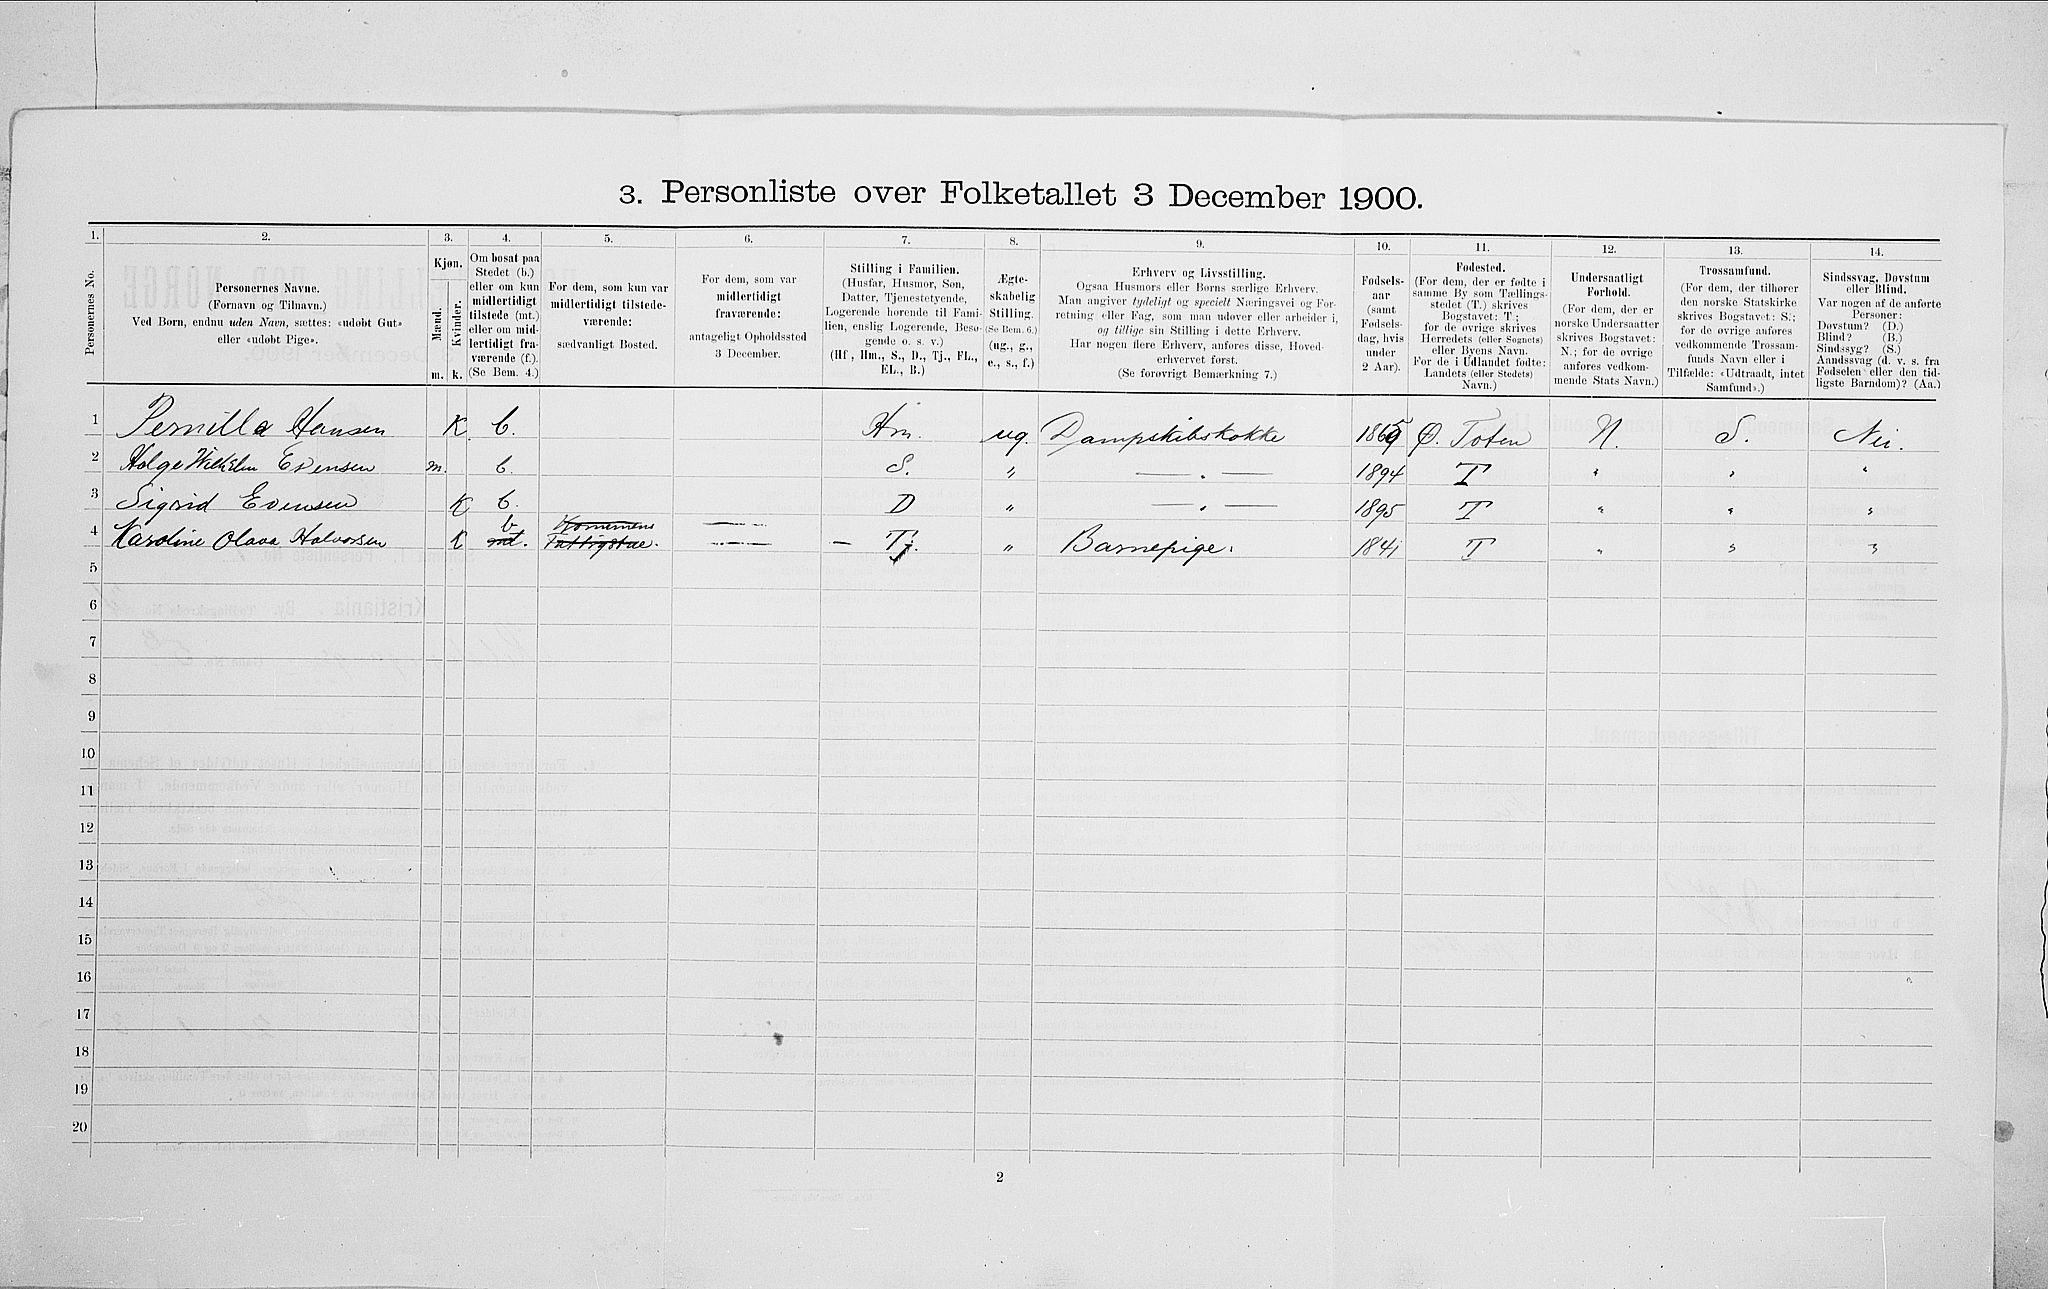 3. Personliste over Folketallet 3 December 1900.
1. 2. 3. 4. 5. 6. 7. 8. 9. 10. 11. 12. 13. 14.
Personernes No.
Personernes Navne.
(Fornavn og Tilnavn.)
Ved Børn, endnu uden Navn, sættes: «udøbt Gut»
eller «udøbt Pige».
Kjøn.
Mænd.
Kvinder.
m. k.
Om bosat paa
Stedet (b.)
eller om kun
midlertidigt
tilstede (mt.)
eller om mid-
lertidigt fra-
værende (f.).
(Se Bem. 4.)
For dem, som kun var
midlertidigt tilstede-
værende:
sædvanligt Bosted.
For dem, som var
midlertidigt
fraværende:
antageligt Opholdssted
3 December.
Stilling i Familien.
(Husfar, Husmor, Søn,
Datter, Tjenestetyende,
Logerende hørende til Fami-
lien, enslig Logerende, Besø-
gende o. s. v.)
(Hf , Hm., S., D., Tj., FL.,
EL., B.)
Ægte-
skabelig
Stilling.
(Se Bem. 6.)
(ug., g.,
e., s., f.)
Erhverv og Livsstilling.
Ogsaa Husmors eller Børns særlige Erhverv.
Man angiver tydeligt og specielt Næringsvei og For-
retning eller Fag, som man udøver eller arbeider i,
og tillige sin Stilling i dette Erhverv.
Har nogen flere Erhverv, anføres disse, Hoved-
erhvervet først.
(Se forøvrigt Bemærkning 7.)
Fødsels-
aar
(samt
Fødsels-
dag, hvis
under
2 Aar).
Fødested.
(For dem, der er fødte i
samme By som Tællings-
stedet (T.) skrives
Bogstavet: T.;
for de øvrige skrives
Herredets (eller Sognets)
eller Byens Navn.
For de i Udlandet fødte:
Landets (eller Stedets)
Navn.)
Undersaatligt
Forhold.
(For dem, der er
norske Undersaatter
skrives Bogstavet:
N.; for de øvrige
anføres vedkom-
mende Stats Navn.)
Trossamfund.
(For dem, der tilhører
den norske Statskirke
skrives Bogstavet: S.;
for de øvrige anføres
vedkommende Trossam-
funds Navn eller i
Tilfælde: «Udtraadt, intet
Samfund».)
Sindssvag, Døvstum
eller Blind.
Var nogen af de anførte
Personer:
Døvstum? (D.)
Blind? (B.)
Sindssyg? (S.)
Aandssvag (d. v. s. fra
Fødselen eller den tid-
ligste Barndom)? (Aa.)
1 Pernilla Hansen K. b. Hm. ug. Dampskibskokke Ø. Toten N. S. Nei.
2 Holge Wilhelm Evensen m. b. S. " — " — 1894 T " " "
3 Sigrid Evensen K b. D " — " — 1895 T " " "
4 Karoline Olava Halvorsen K b mt. Fattigstue. — Tj. " Barnepige. 1841 T " " "
5
6
7
8
9
10
11
12
13
14
15
16
17
18
19
20
2